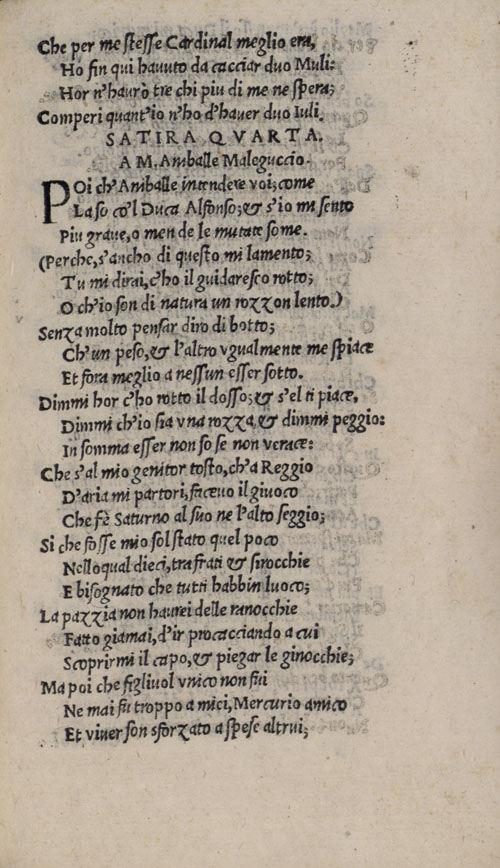 Che per me stesse Cardinal meglio era,
Ho fin qui hauuto da cacciar duo Muli:
Hor n'haurò tre chi piu di me ne spera;
Comperi quant'io n'ho d'hauer duo Iuli.
SATIRA QVARTA.
A M. Aniballe Maleguccio.
POi ch'Aniballe intendere voi; come
La fo co'l Duca Alfonso; & s'io mi sento
Piu graue, o men de le mutate some.
(Perche, s'ancho di questo mi lamento;
Tu mi dirai, c'ho il guidaresco rotto;
O ch'io son di natura un rozzon lento.)
Senza molto pensar diro di botto;
Ch'un peso, & l'altro vgualmente me spiace
Et fora meglio a nessun esser sotto.
Dimmi hor c'ho rotto il dosso; & s'el ti piace,
Dimmi ch'io sia vna rozza, & dimmi peggio:
In somma esser non so se non verace:
Che s'al mio genitor tosto, ch'a Reggio
D'aria mi partori, faceuo il giuoco
Che fè Saturno al suo ne l'alto seggio;
Si che fosse mio sol stato quel poco
Nello qual dieci, tra frati & sirocchie
E bisognato che tutti habbin luoco;
La pazzia non haurei delle ranocchie
Fatto giamai, d'ir procacciando a cui
Scoprirmi il capo, & piegar le ginocchie;
Ma poi che figliuol vnico non fui
Ne mai fu troppo a mici, Mercurio amico
Et viuer son sforzato a spese altrui;